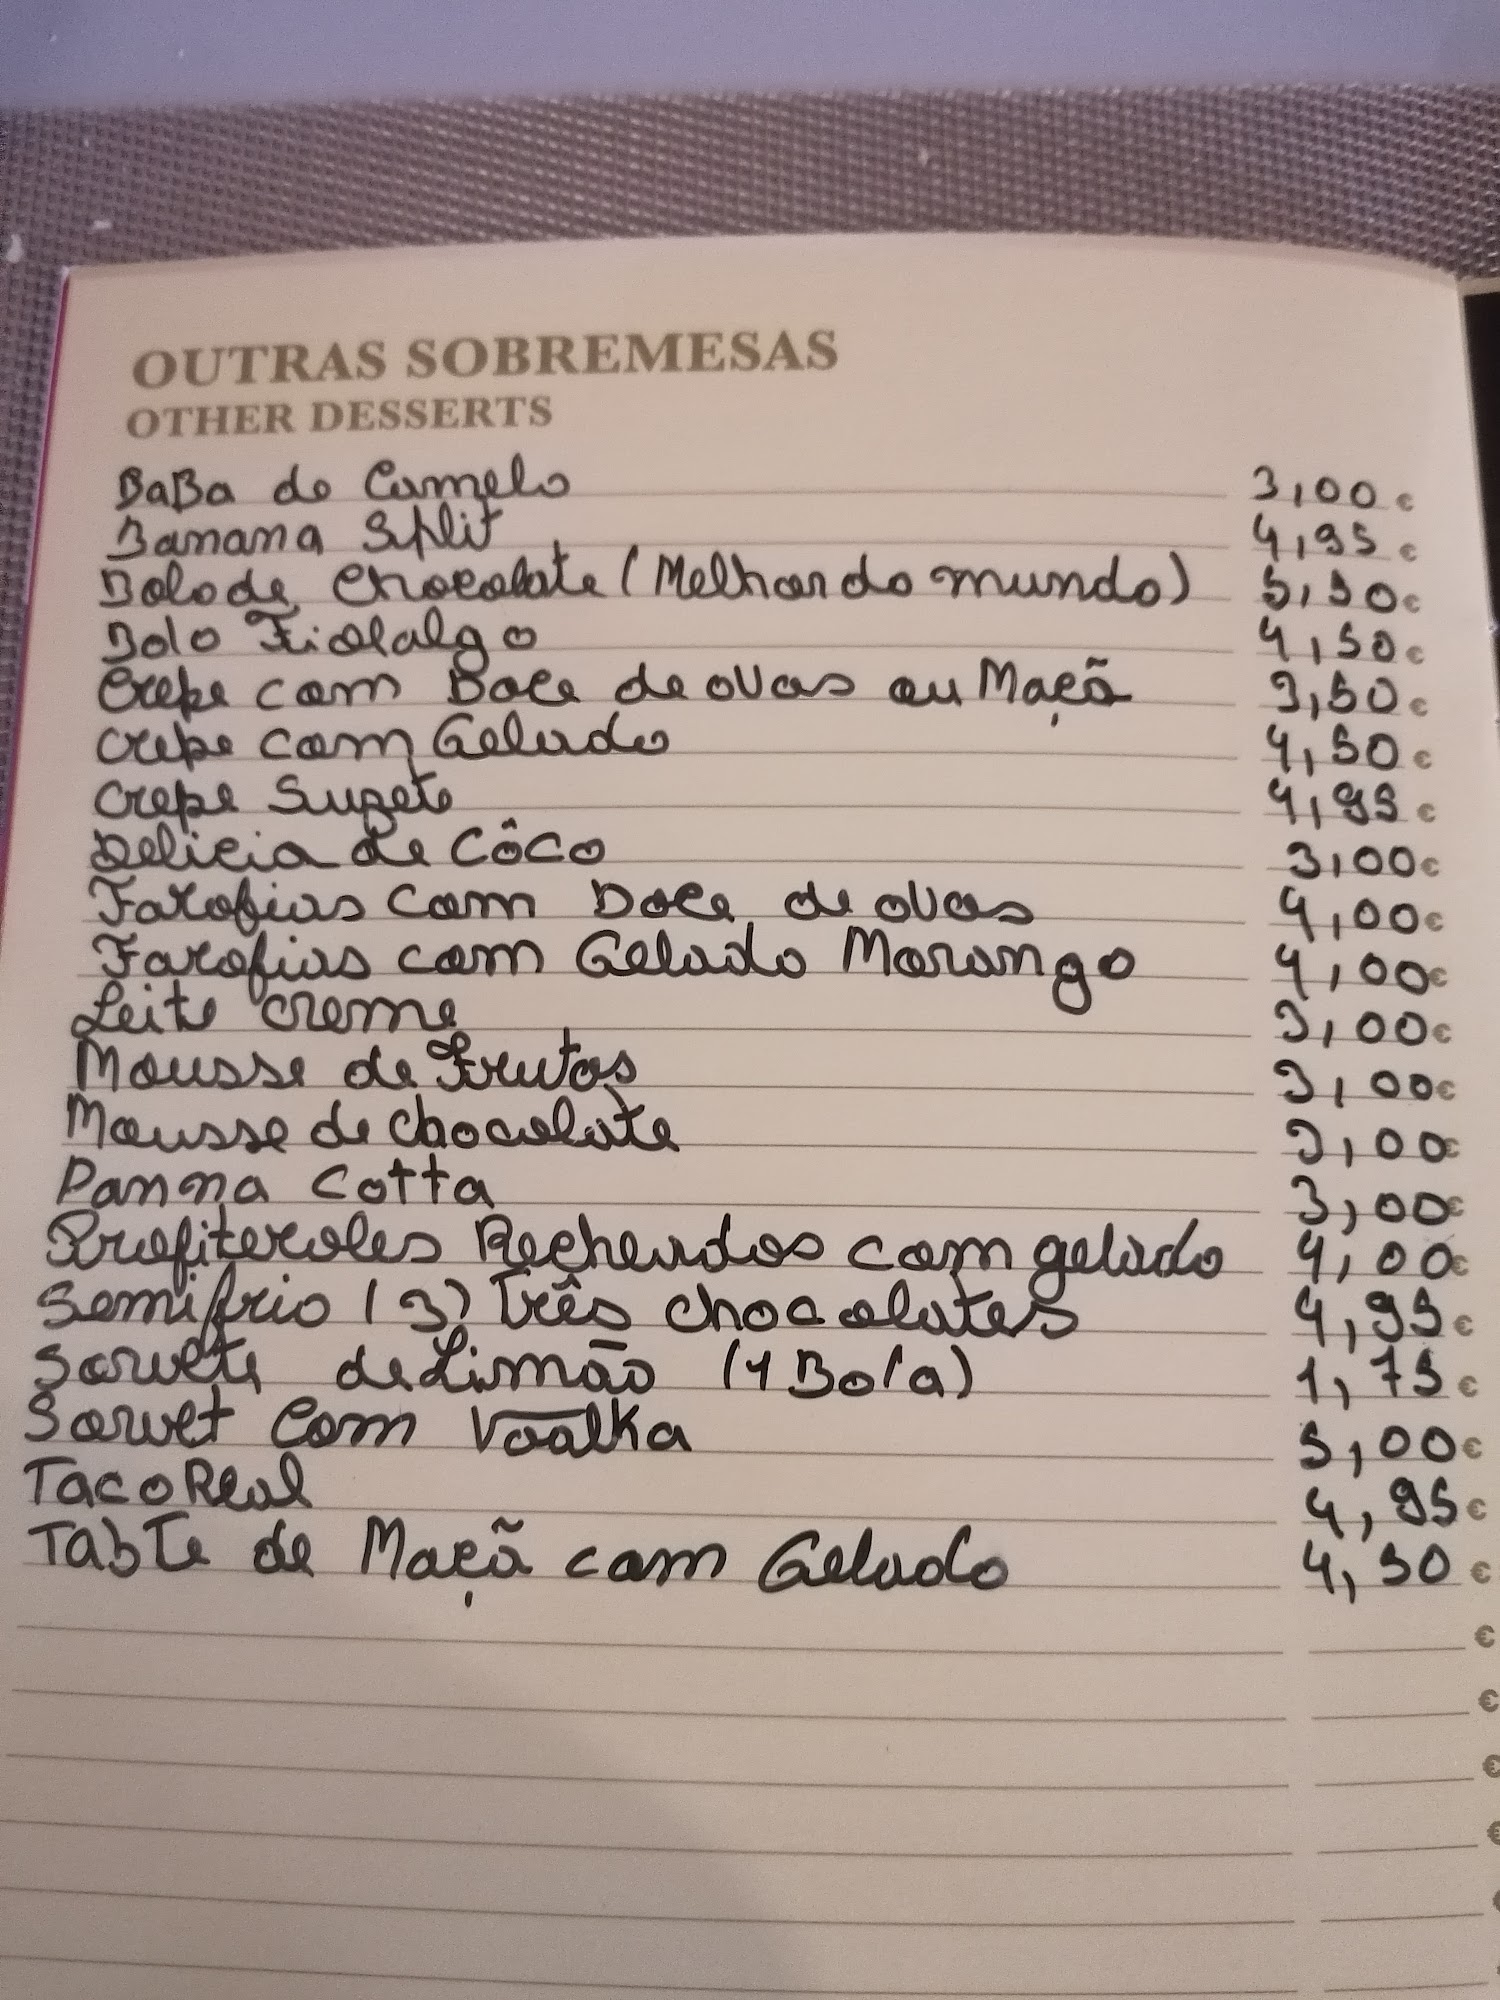 OUTRAS SOBREMESAS
OTHER DESSERTS
BaBa de Camelo 3,00 €
Banana Split 4,95 €
Bolo de Chocolate (Melhor do mundo) 5,50 €
Bolo Fidalgo 4,50 €
Crepe com Doce de ovos ou Maçã 3,50 €
Crepe com Gelado 4,50 €
Crepe Suzete 4,95 €
Delicia de Côco 3,00 €
Farofias com Doce de ovos 4,00 €
Farofias com Gelado Morango 4,00 €
Leite Creme 3,00 €
Mousse de Frutas 3,00 €
Mousse de Chocolate 3,00 €
Panna Cotta 3,00 €
Profiteroles Recheados com gelado 4,00 €
Semifrio (3) Três chocolates 4,95 €
Sorvete de Limão (1 Bola) 1,75 €
Sorvet Com Vodka 5,00 €
Taco Real 4,95 €
Tarte de Maçã com Gelado 4,50 €
€
€
€
€